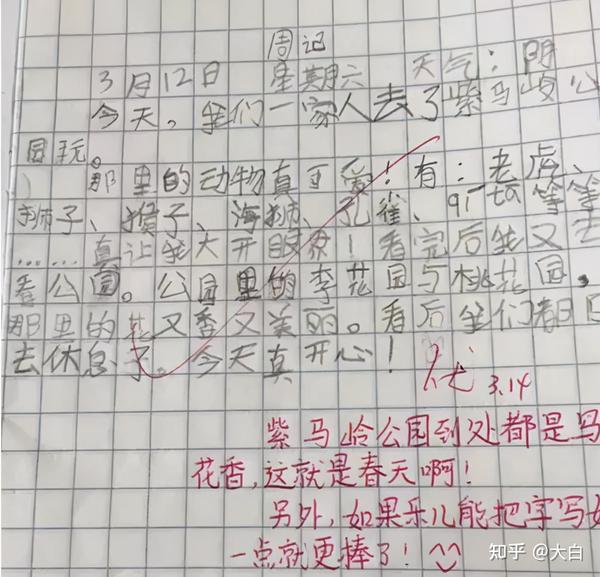 周记
3月12日 星期六 天气：阴
今天。我们一家人去了紫马岭公
园玩。
那里的动物真可爱！有：老虎、
狮子、猴子、海狮、孔雀、等等
……真让我大开眼界！看完后我又去
看公园。公园里的李花园与桃花园。
那里的花又香又美丽。看后我们都回
去休息了。今天真开心！
优 3.14
紫马岭公园到处都是鸟
花香，这就是春天啊！
另外，如果乐儿能把字写
一点就更棒了！
知乎 @大白